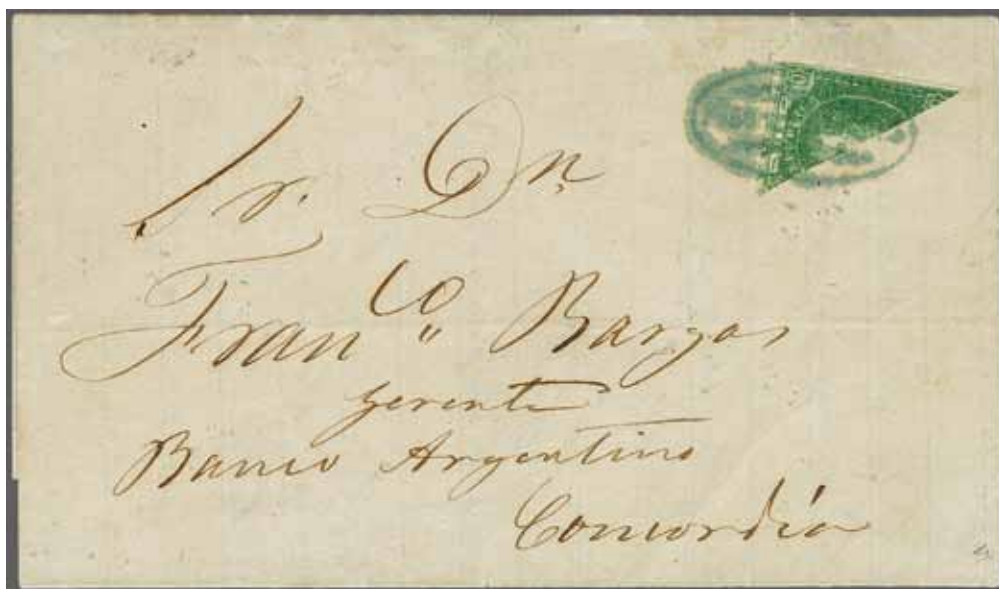 Sr. Dn.
Franco Bargas
Gerente
Banco Argentino
Concordia